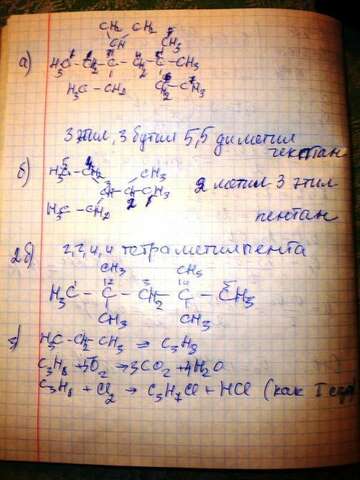 а)
CH₂ CH₂
CH CH₃
H₃C – CH₂ – C – CH₂ – C – CH₃
H₃C – CH₂ CH₂ – CH₃
3 этил, 3 бутил 5,5 диметил
б)
H₃C – CH₂ CH₃
CH – CH – CH₃
H₃C – CH₂
2 метил 3 этил
пентан
2б) 2,2,4,4 тетраметилпента
CH₃ CH₃
H₃C – C – CH₂ – C – CH₃
CH₃ CH₃
H₃C – CH₂ – CH₃ ⇒ C₃H₈
C₃H₈ + 5O₂ → 3CO₂ + 4H₂O
C₃H₈ + Cl₂ → C₃H₇Cl + HCl (как I